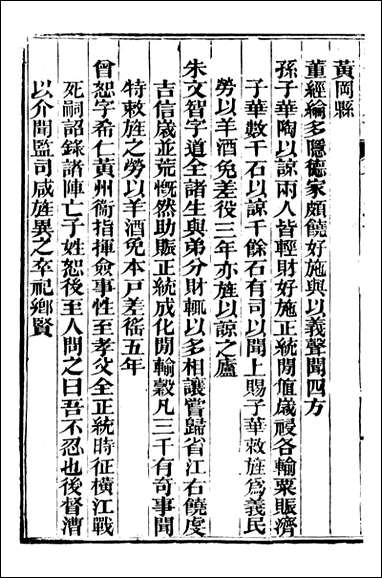 黃岡縣
董經綸多隱德家頗饒好施與以義聲聞四方
孫子華陶以諒兩人皆輕財好施正統間値歲祲各輸粟賑濟
子華數千石以諒千餘石有司以聞上賜子華敕旌爲義民
勞以羊酒免差役三年亦旌以諒之廬
朱文智字道全諸生與弟分財輒以多相讓嘗歸省江右饒度
古信歲並荒慨然助賑正統成化間輸穀凡三千有奇事聞
特敕旌之勞以羊酒免本戸差徭五年
曾恕字希仁黃州衞指揮僉事性至孝父全正統時征橫江戰
死祠詔錄諸陣亡子姓恕後至人問之曰吾不忍也後督漕
以介聞監司咸旌異之卒祀鄉賢